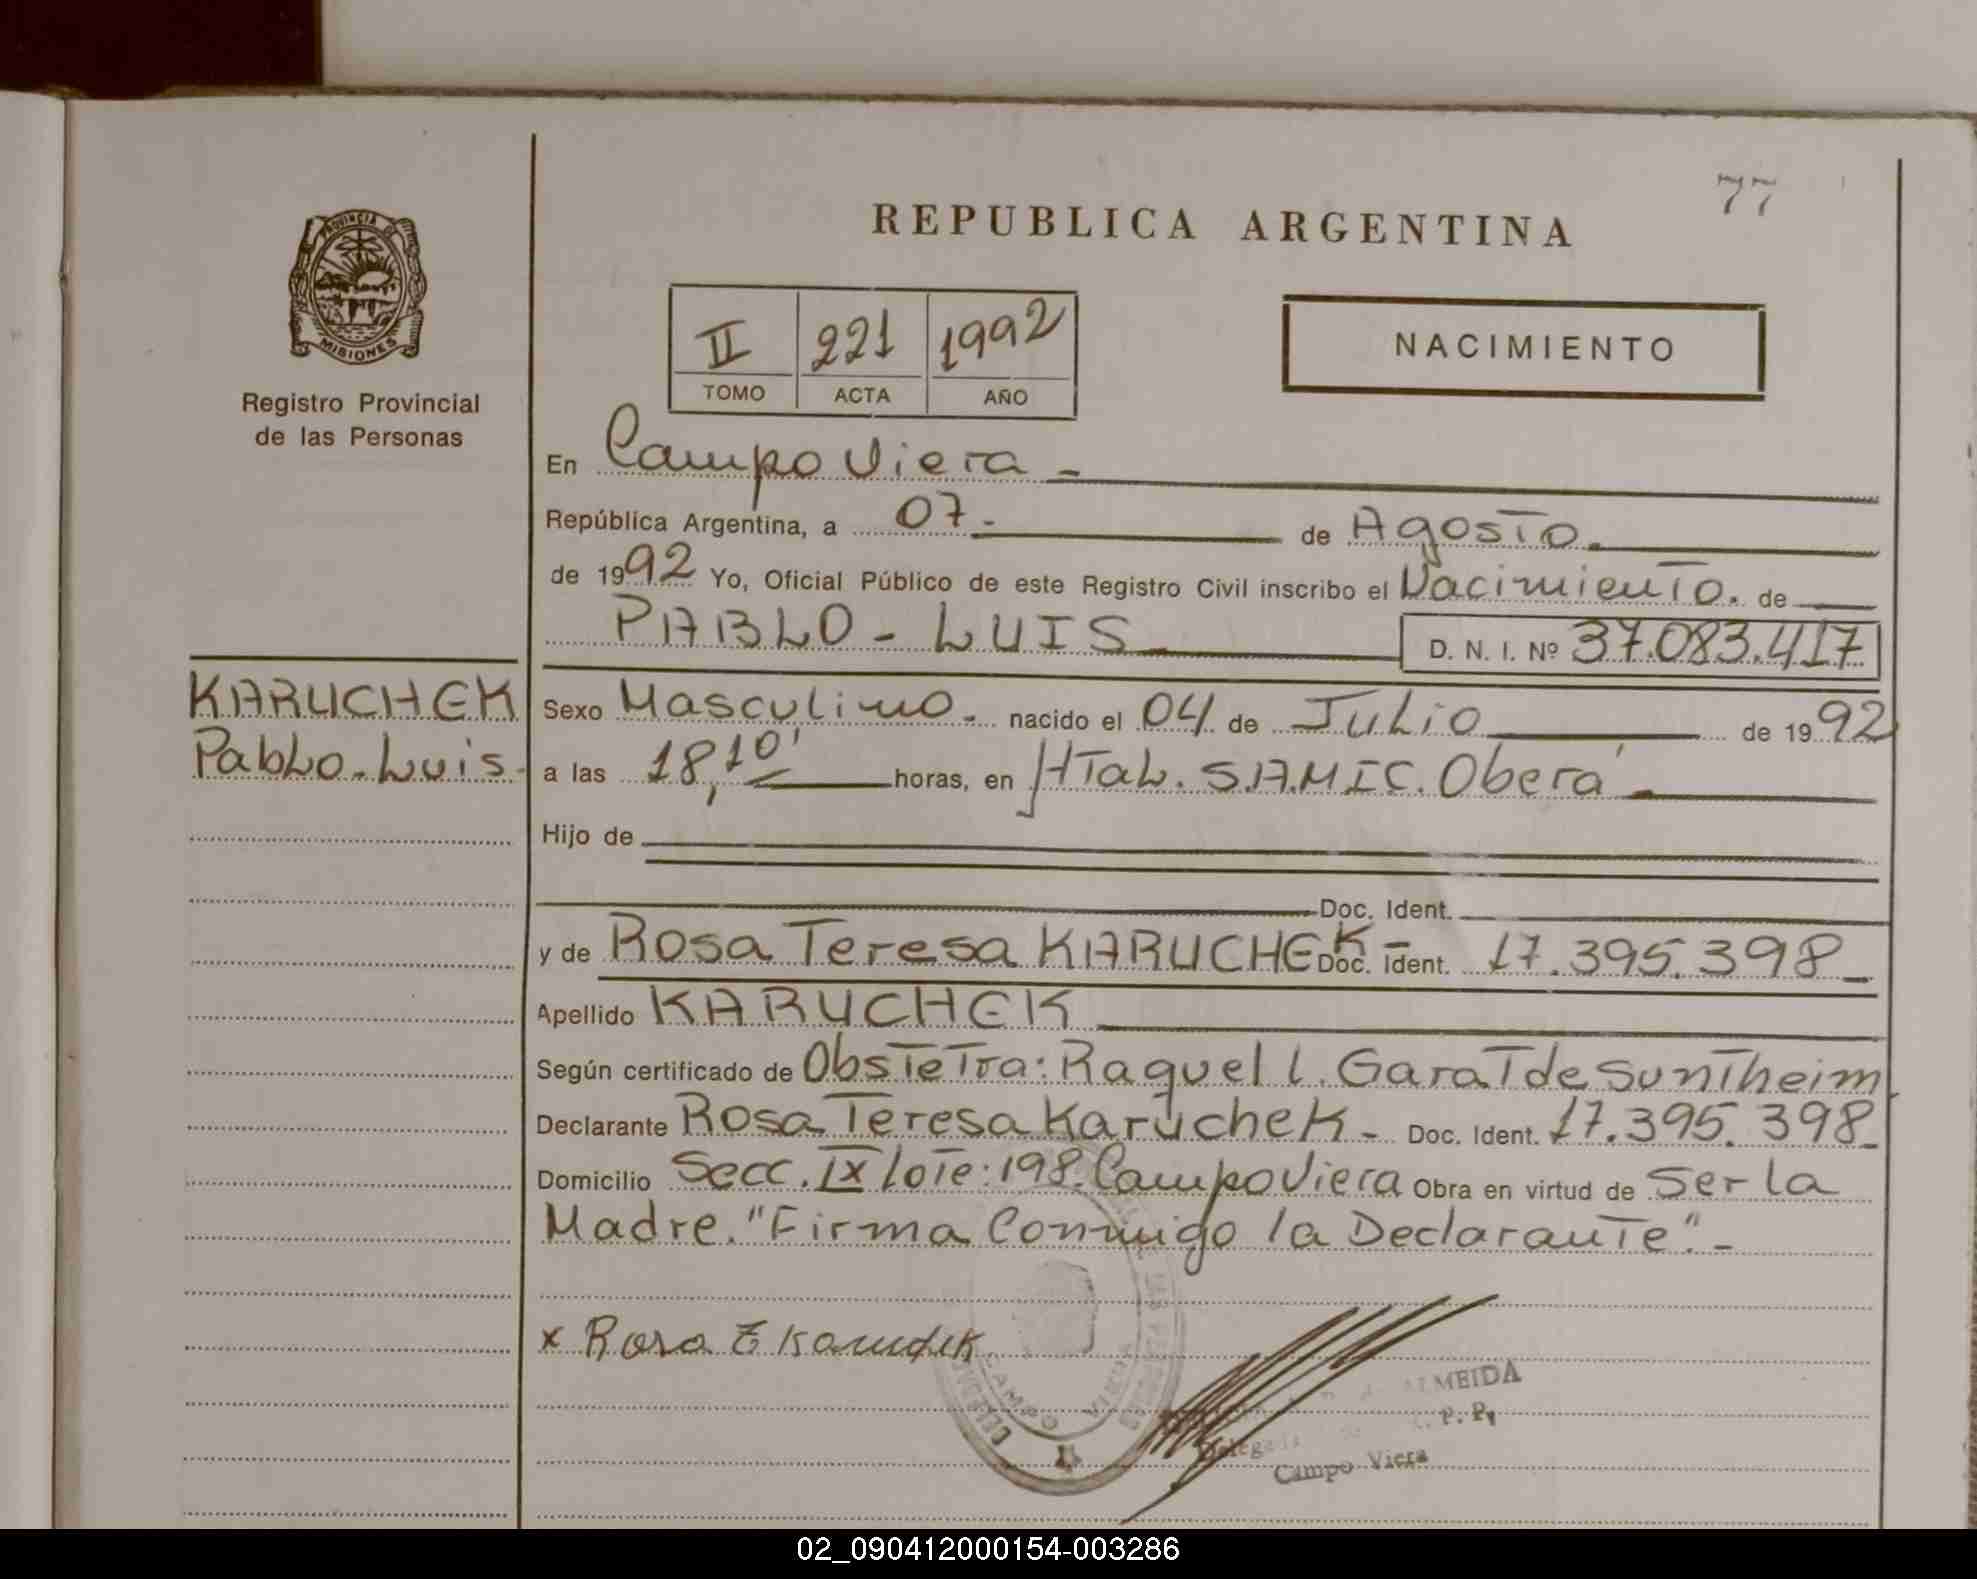 77
REPUBLICA ARGENTINA
PROVINCIA DE
MISIONES
Registro Provincial
de las Personas
II 221 1992
TOMO ACTA AÑO
NACIMIENTO
En Campo Viera -
República Argentina, a 07.- de Agosto.
de 1992 Yo, Oficial Público de este Registro Civil inscribo el Nacimiento. de
PABLO - LUIS D. N. I. Nº 37.083.417
KARUCHEK
Pablo-Luis-
Sexo Masculino.- nacido el 04 de Julio de 1992
a las 18,10' horas, en HTaL. S.A.M.I.C. Oberá
Hijo de
Doc. Ident.
y de Rosa Teresa KARUCHEK - Doc. Ident. 17.395.398_
Apellido KARUCHEK
Según certificado de ObsTeTra: Raquel l. GaraT de SunTheim
Declarante Rosa Teresa Karuchek - Doc. Ident. 17.395.398_
Domicilio Secc. IX loTe: 198. Campo Viera Obra en virtud de Ser la
Madre. "Firma Conmigo la DeclaranTe".-
x Rosa T Karuchek
ALMEIDA
P. P.
CAMPO VIERA
Campo Viera
02_090412000154-003286